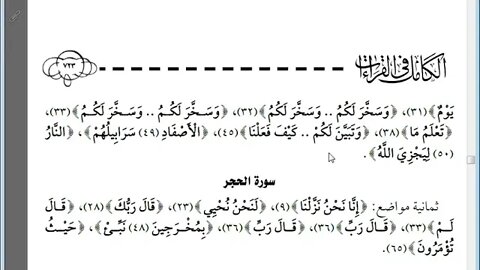 الكامل في القراءات
٧٢٣
يَوْمٌ﴾(٣١)، ﴿وَسَخَّرَ لَكُمُ .. وَسَخَّرَ لَكُمُ﴾(٣٢)، ﴿وَسَخَّرَ لَكُمُ .. وَسَخَّرَ لَكُمُ﴾(٣٣)،
﴿تَعْلَمُ مَا﴾(٣٨)، ﴿وَتَبَيَّنَ لَكُمْ .. كَيْفَ فَعَلْنَا﴾(٤٥)، ﴿الْأَصْفَادِ (٤٩) سَرَابِيلُهُمْ﴾، ﴿النَّارُ
(٥٠) لِيَجْزِيَ اللَّهُ﴾.
سورة الحجر
ثمانية مواضع: ﴿إِنَّا نَحْنُ نَزَّلْنَا﴾(٩)، ﴿لَنَحْنُ نُحْيِي﴾(٢٣)، ﴿قَالَ رَبُّكَ﴾(٢٨)، ﴿قَالَ
لَمْ﴾(٣٣)، ﴿قَالَ رَبِّ﴾(٣٦)، ﴿قَالَ رَبِّ﴾(٣٦)، ﴿بِمُخْرَجِينَ (٤٨) نَبِّئْ﴾، ﴿حَيْثُ
تُؤْمَرُونَ﴾(٦٥).